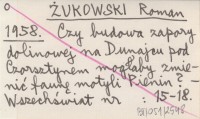 o
ŻUKOWSKI Roman
1958. Czy budowa zapory
dolinowej na Dunajcu pod
Czorsztynem mogłaby zmie-
nić faunę motyli Pienin?
Wszechświat nr : 15-18.